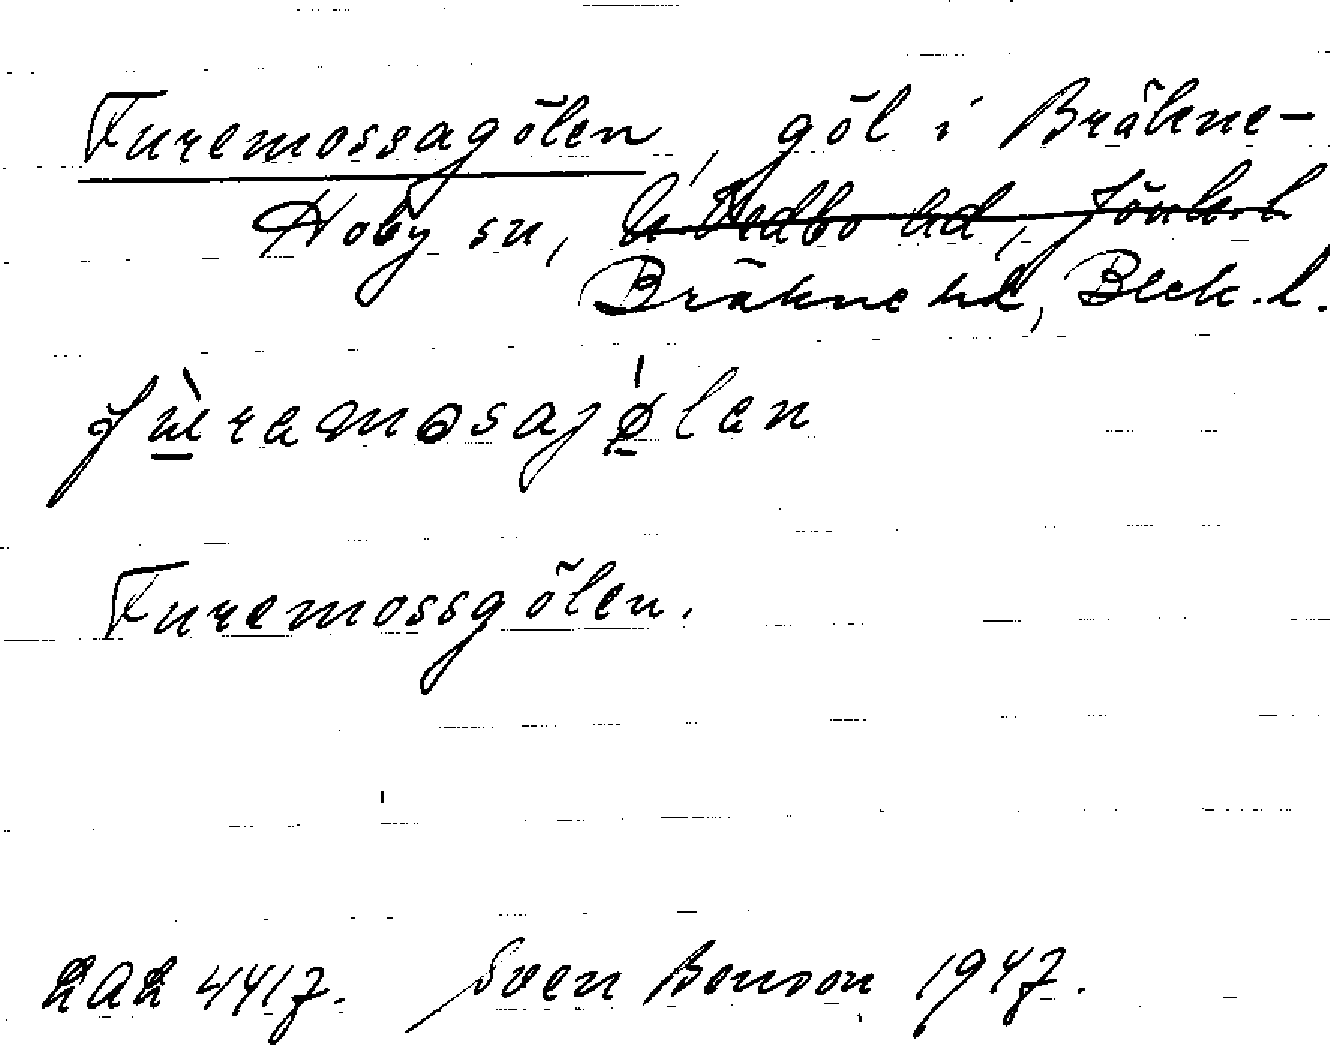 Furemossagölen, göl i Bräkne-
Hoby sn, N Vedbo hd, Jönk. l
Bräkne hd, Blek. l.
fùramosajǿlan
Furemossgölen.
LAL 4417. Sven Benson 1947.